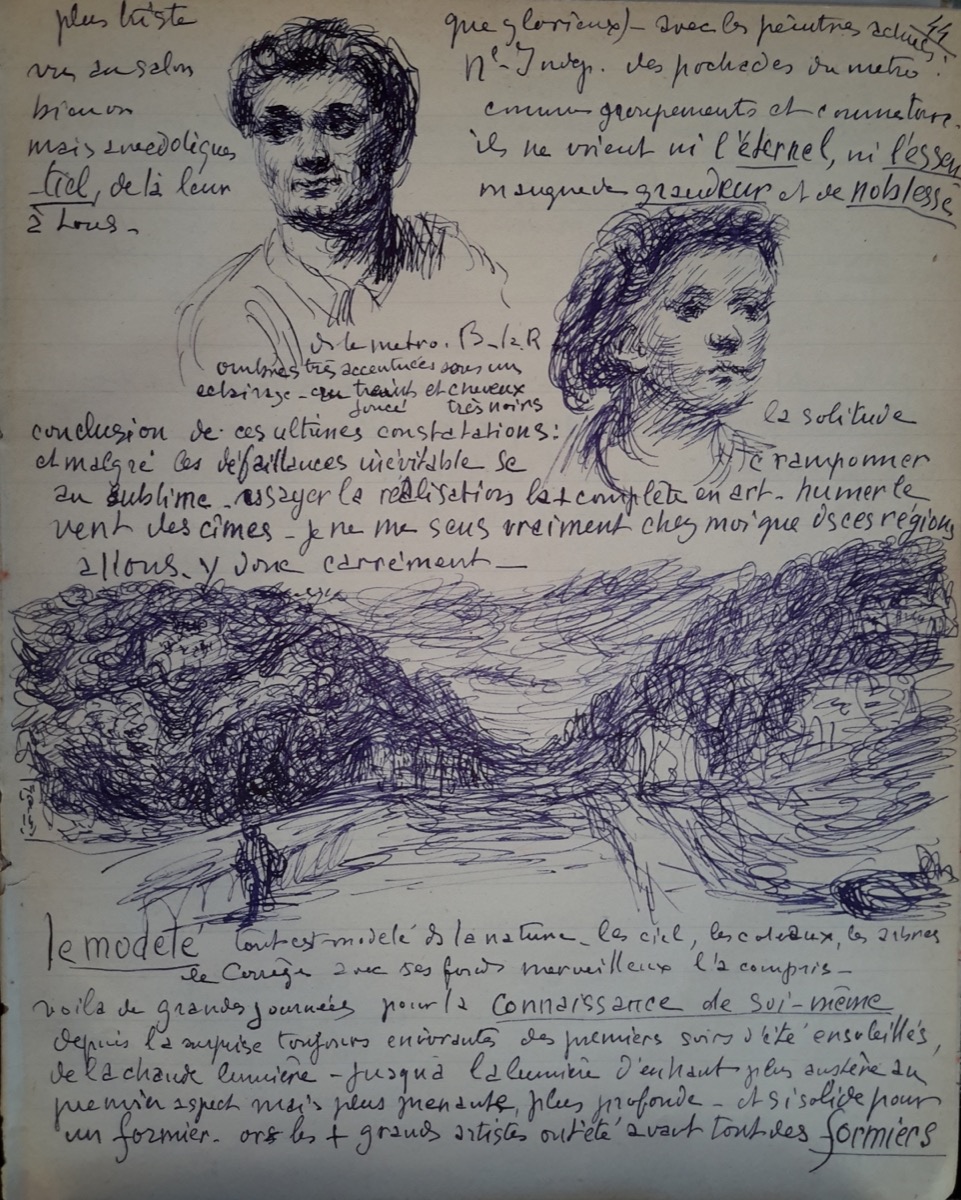 plus triste que glorieux) - avec les peintres actuels 44
vus au salon Nl-Indep. des pochades du metro.
bien comme groupements et comme
mais anecdotiques ils ne voient ni l'éternel, ni l'essen
tiel, de là leur manque de grandeur et de noblesse
à tous.
ds le metro. B-la-R
ombres très accentuées sous un
eclairage - cru traits et cheveux
foncé très noirs
la solitude
conclusion de ces ultimes constatations:
et malgré les défaillances inévitable se cramponner
au sublime. essayer la réalisation la + complète en art - humer le
vent des cîmes - je ne me sens vraiment chez moi que ds ces régions
allons-y donc carrément -
le modelé tout est modelé ds la nature - les ciel, les coteaux, les arbres
le Corrège avec ses fonds merveilleux l'a compris -
voila de grandes journées pour la connaissance de soi-même
depuis la surprise toujours enivrante des premiers soirs d'été ensoleillés,
de la chaude lumière - jusqu'à la lumière d'en haut plus austère au
premier aspect mais plus prenante, plus profonde - et si solide pour
un formier. or les + grands artistes ont été avant tout des formiers